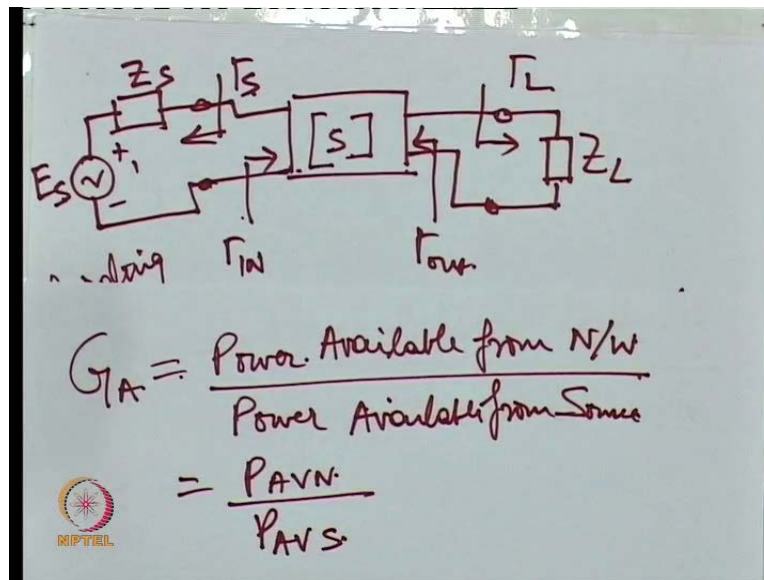 Zs Γs ΓL
Es + - [S] ZL
ΓIN Γout
GA = Power Available from N/W
Power Available from Source
= PAVN
PAVS
NPTEL